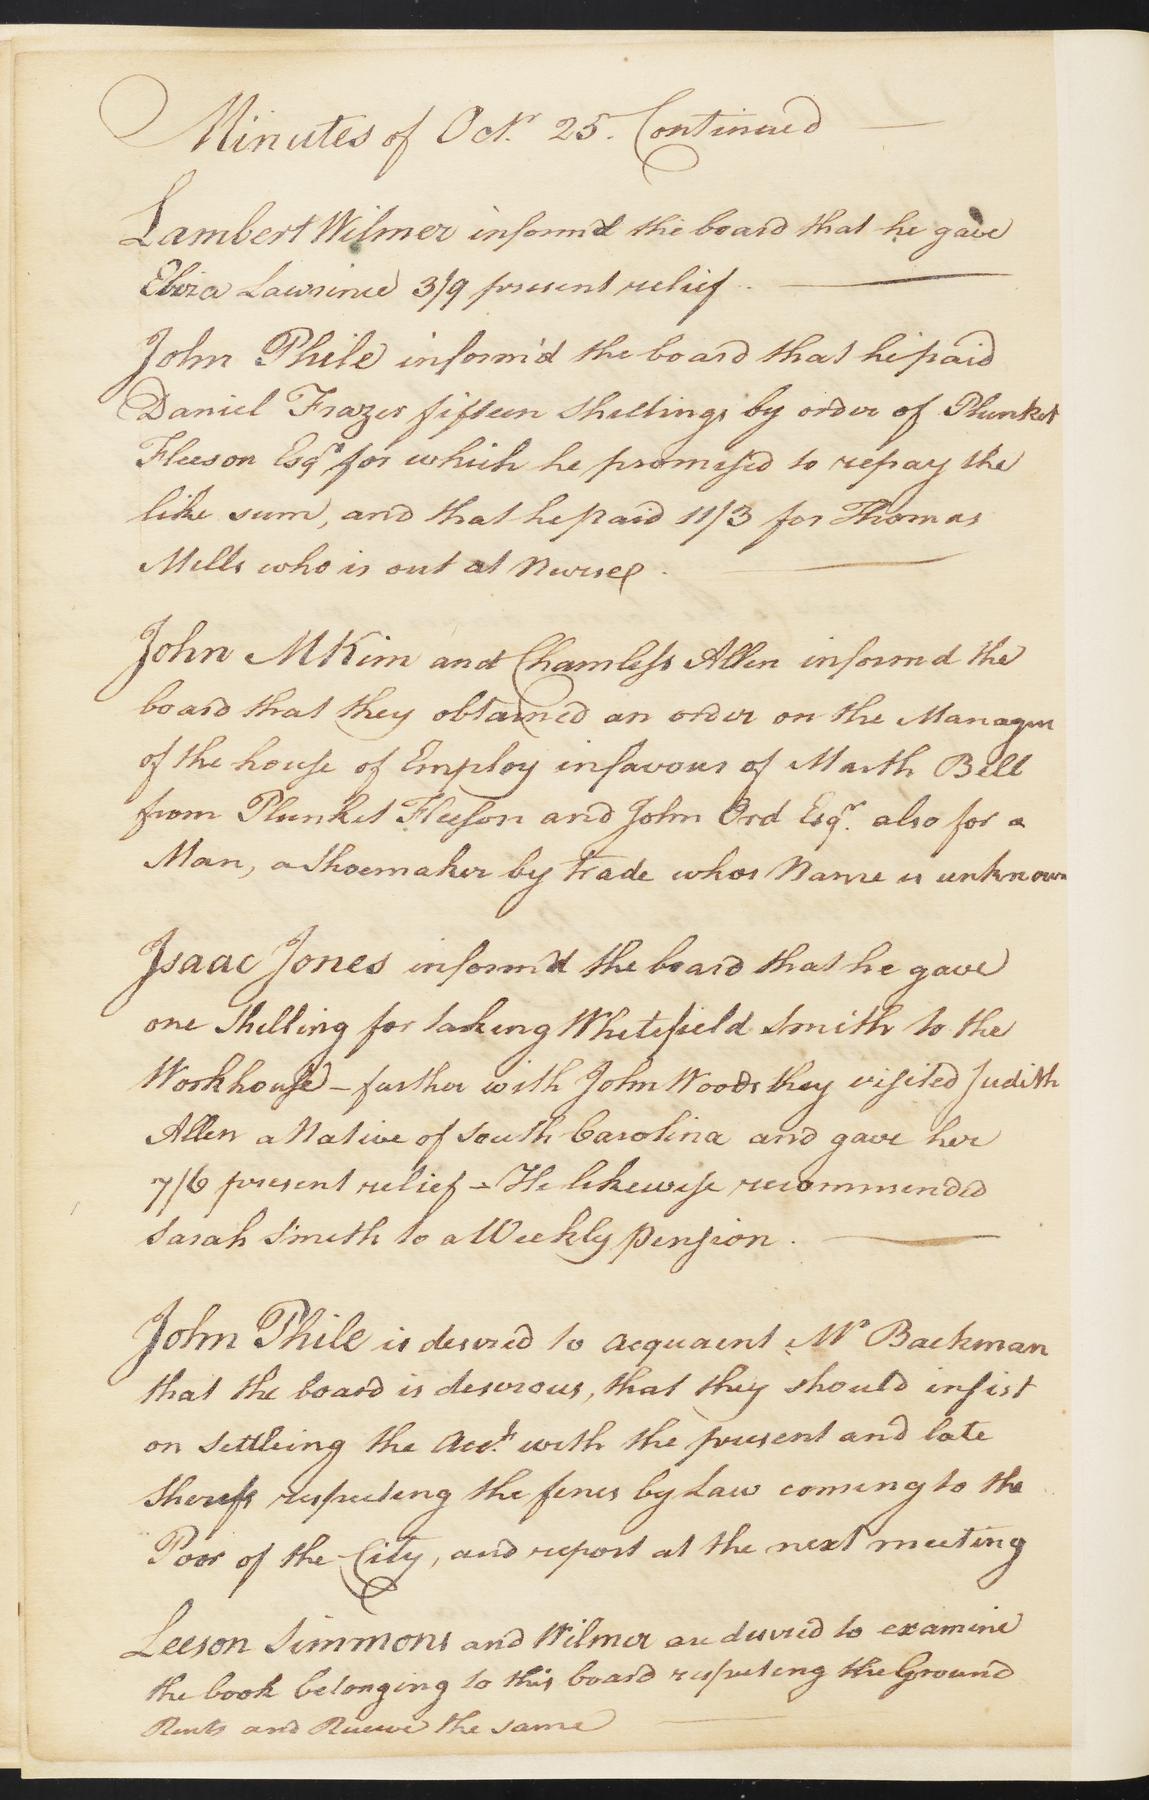 Minutes of Octr. 25. Continued
Lambert Wilmer inform'd the board that he gave
Eliza Lawrince 3/9 present relief.
John Phile inform'd the board that he paid
Daniel Frazer fifteen shillings by order of Plunket
Fleeson Esqr. for which he promised to repay the
like sum, and that he paid 11/3 for Thomas
Mills who is out at Nurse
John MKim and Chamless Allen informd the
board that they obtained an order on the Manager
of the house of Employ in favour of Marth Bell
from Plunket Fleeson and John Ord Esqr. also for a
Man, a Shoemaker by trade whos Name is unknown
Isaac Jones inform'd the board that he gave
one Shilling for taking Whitefield Smith to the
Workhouse – farther with John Woods they visited Judith
Allen a Native of South Carolina and gave her
7/6 present relief – He likewise recommended
Sarah Smith to a Weekly pension.
John Phile is desired to acquaint Mr Backman
that the board is desirous, that they should insist
on settleing the Acct. with the present and late
Sherifs respecting the fines by Law coming to the
Poor of the City, and report at the next meeting
Leeson Simmons and Wilmer are desired to examine
the book belonging to this board respecting the Ground
Rents and the same